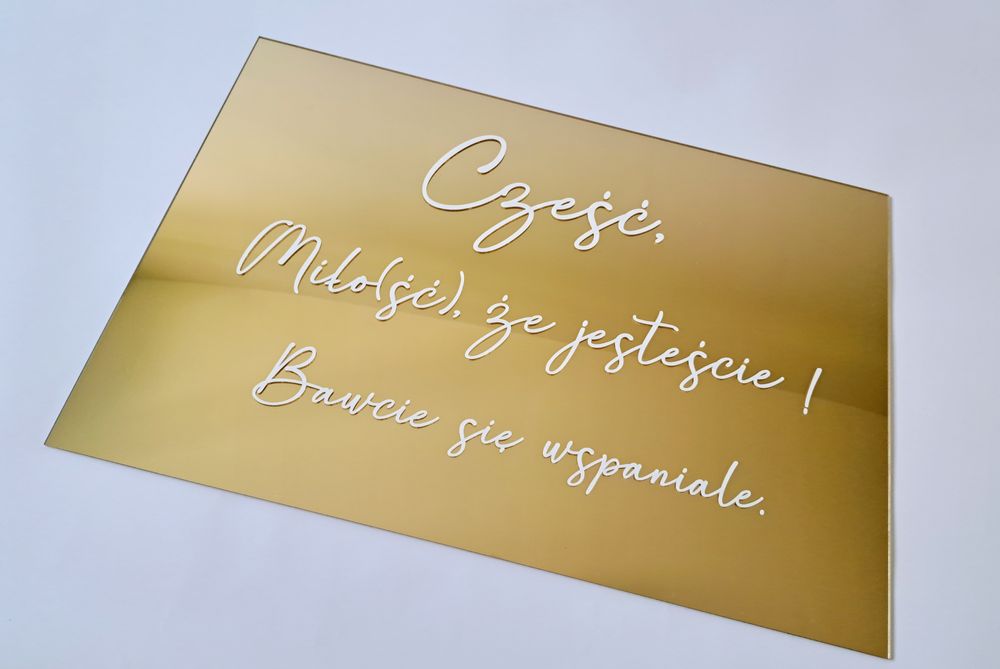 Cześć,
Miło(ść), że jesteście !
Bawcie się wspaniale.